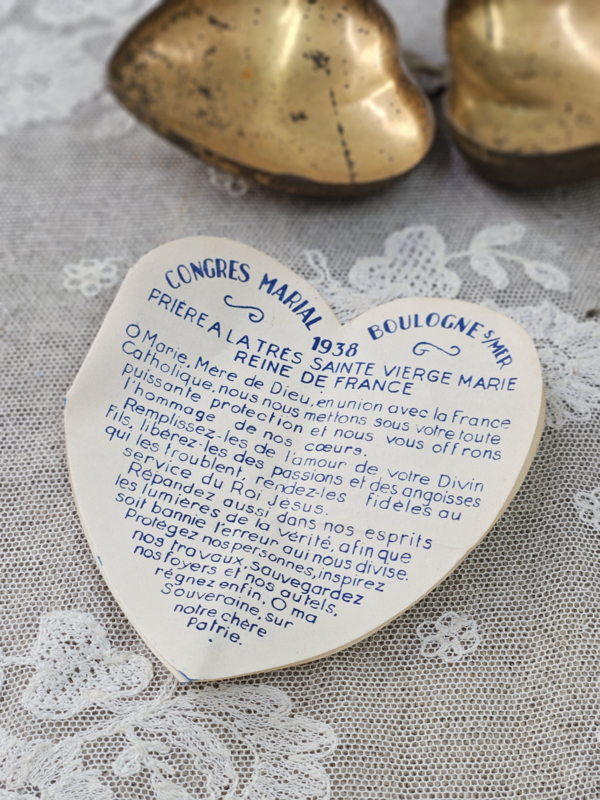 CONGRES MARIAL 1938 BOULOGNE S/MER
PRIÈRE A LA TRÈS SAINTE VIERGE MARIE
REINE DE FRANCE
O Marie, Mère de Dieu, en union avec la France
Catholique, nous nous mettons sous votre toute
puissante protection et nous vous offrons
l'hommage de nos cœurs.
Remplissez-les de l'amour de votre Divin
Fils, libérez-les des passions et des angoisses
qui les troublent, rendez-les fidèles au
service du Roi Jésus.
Répandez aussi dans nos esprits
les lumières de la vérité, afin que
soit bannie l'erreur qui nous divise.
Protégez nos personnes, inspirez
nos travaux, sauvegardez
nos foyers et nos autels.
régnez enfin, O ma
Souveraine, sur
notre chère
Patrie.